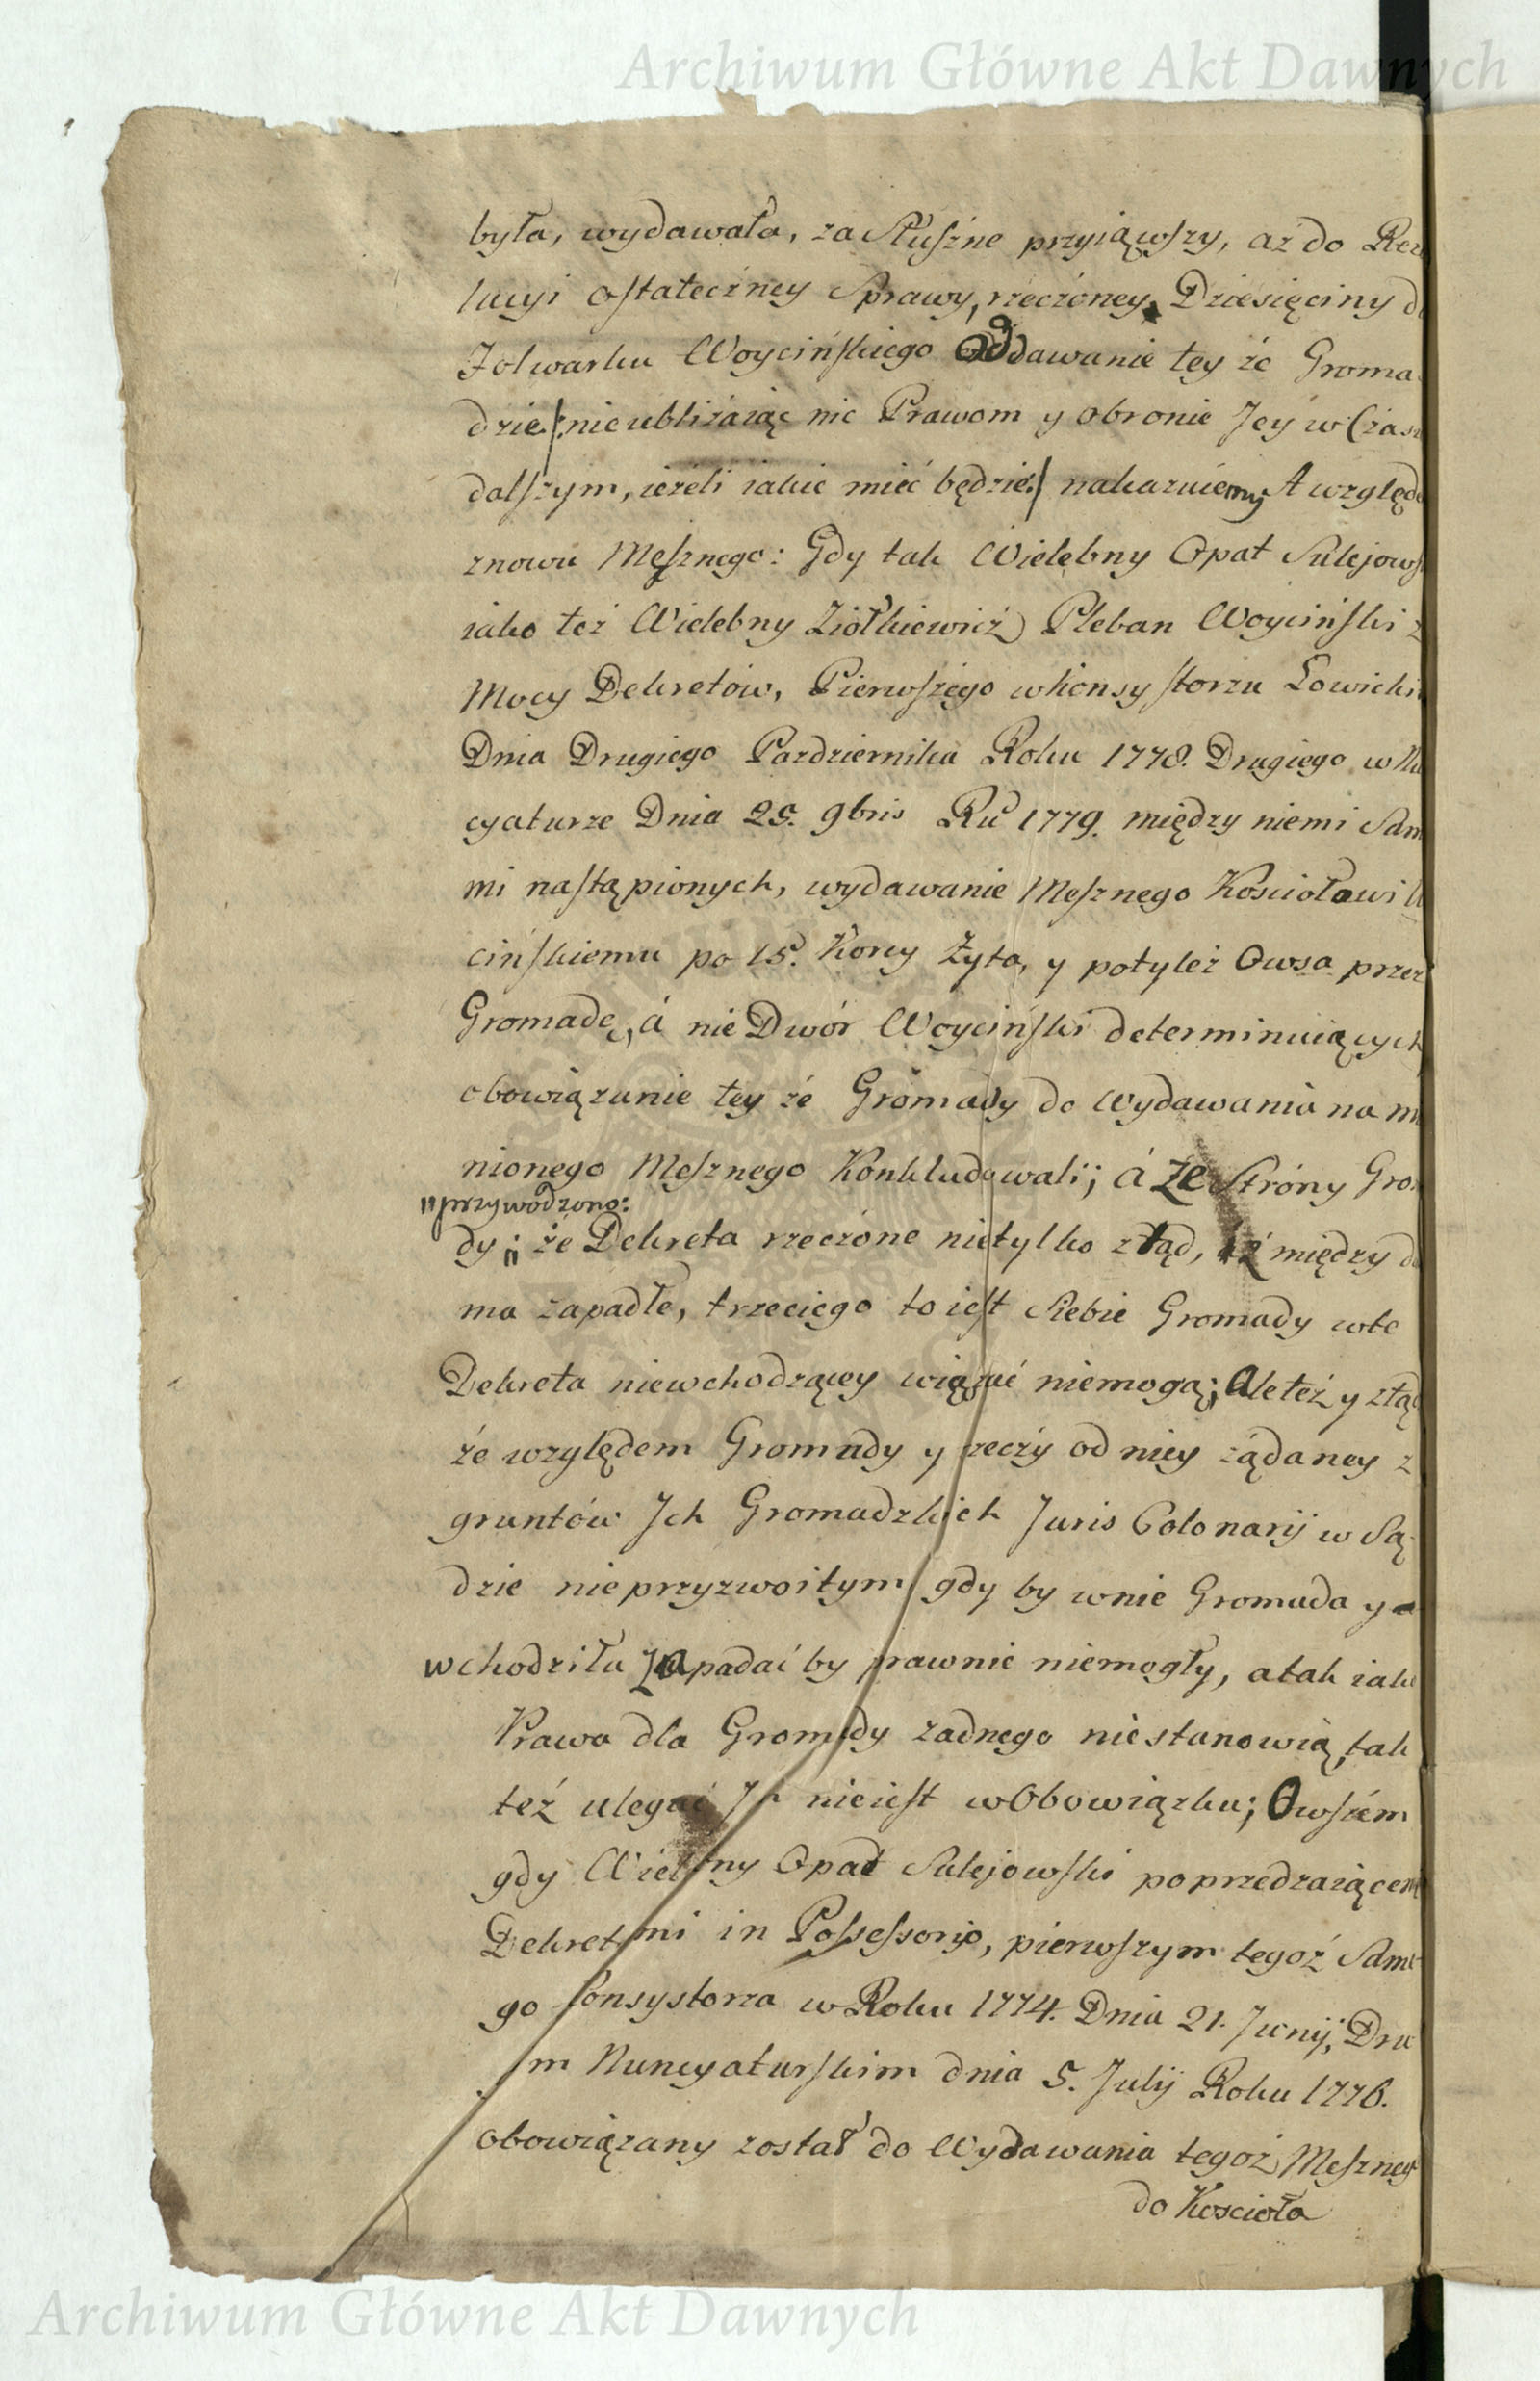 Archiwum Główne Akt Dawnych
była, wydawała, za Słuszne przyiąwszy, aż do Rez
lucyi ostateczney Sprawy, rzeczoney Dziesięciny d
Folwarku Woycińskiego Oddawanie tey że Groma
dzie /: nieubliżaiąc nic Prawom y obronie Jey w Czasi
dalszym, ieżeli iakie mieć będzie :/ nakazuiemy A względe
znowu Mesznego: Gdy tak Wielebny Opat Sulejows
iako też Wielebny Ziółkiewicz Pleban Woyciński z
Mocy Dekretów, Pierwszego w Konsystorzu Łowicki
Dnia Drugiego Pazdziernika Roku 1778. Drugiego w Nu
cyaturze Dnia 25. 9bris Ru 1779. między niemi Sam
mi nastąpionych, wydawanie Mesznego Kościołowi W
cińskiemu po 15. Korcy Żyta, y potyleż Owsa przez
Gromadę, á nie Dwór Woyciński determinuiących
obowiązanie tey że Gromady do wydawania na m
nionego Mesznego Konkludowali; á ze Stróny Gro
"przywodzono:
dy; że Dekreta rzeczone nietylko ztąd, iż między d
ma zapadłe, trzeciego to iest Siebie Gromady w te
Dekreta niewchodzącey wiązać niemogą; Ale też y ztąd
że względem Gromady y rzeczy od niey żądaney z
gruntów Jch Gromadzkich Juris Colonarij w Są
dzie nieprzyzwoitym gdy by w nie Gromada y
wchodziła Zapadać by prawnie niemogły, a tak iako
Prawa dla Gromady żadnego niestanowią, tak
też ulegać Jm nieiest w Obowiązku; Owszem
gdy Wielebny Opat Sulejowski poprzedzaiącem
Dekretami in Possessorio, pierwszym tegoż Same
go Consystorza w Roku 1774. Dnia 21. Junij, Dru
m Nuncyaturskim dnia 5. Julij Roku 1776.
obowiązany został do Wydawania tegoż Mesznego
do Kościoła
Archiwum Główne Akt Dawnych